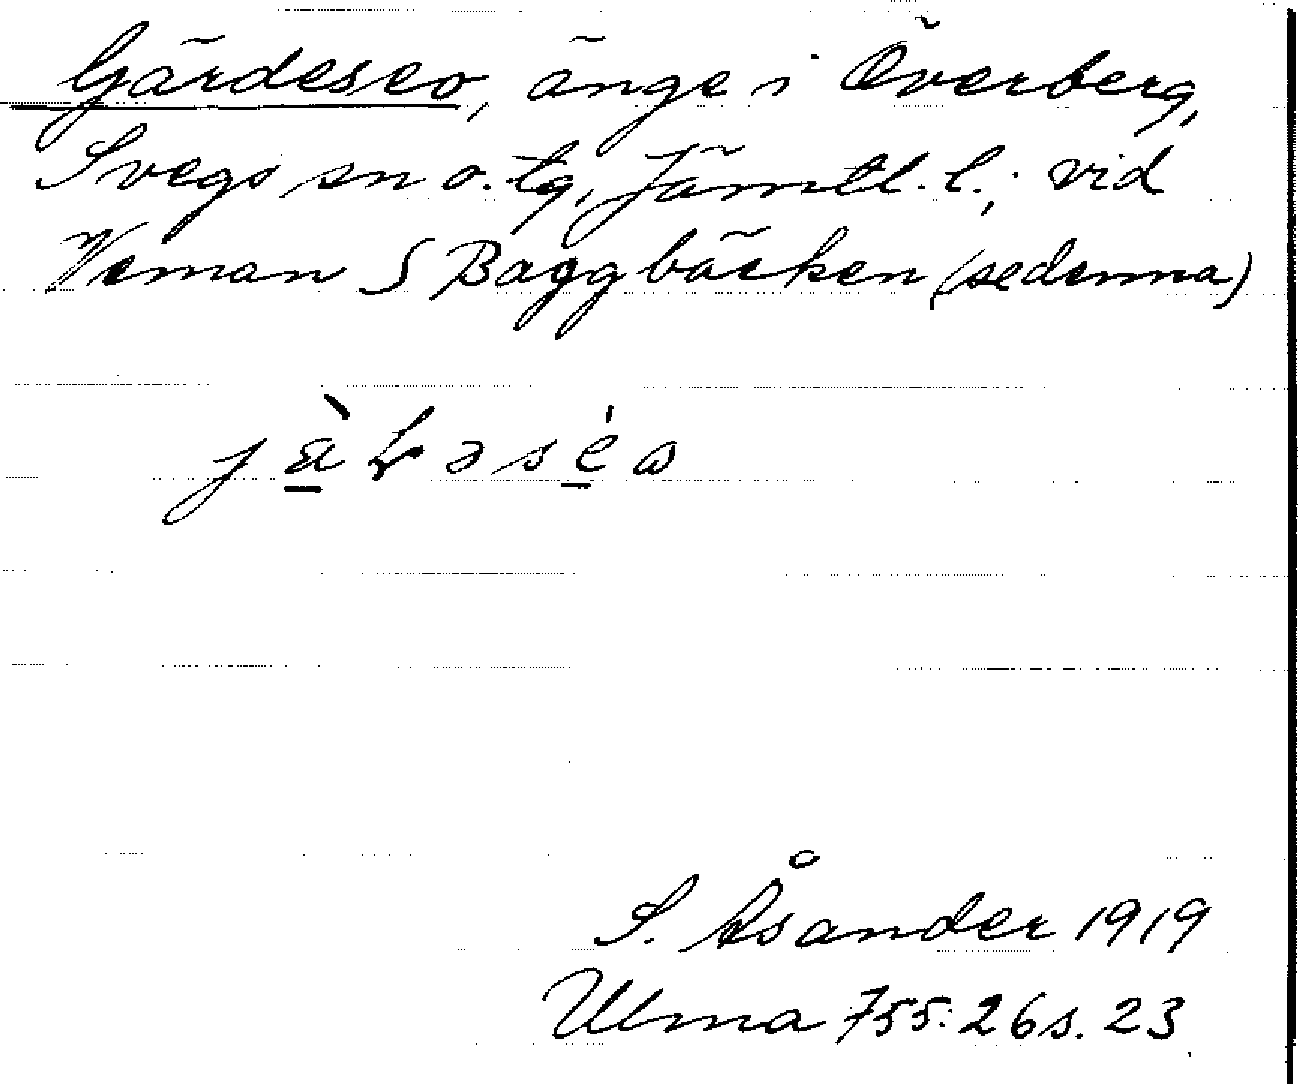 Gärdeseo, änge i Överberg,
Svegs sn o. tg, Jämtl. l.; vid
Veman S Baggbäcken (sedenna)
S. Åsander 1919
Ulma 755: 26 s. 23